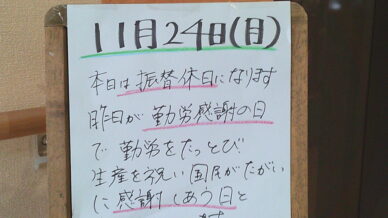 11月24日(月)
本日は振替休日になります
昨日が勤労感謝の日
で勤労をたっとび
生産を祝い国民がたがい
に感謝しあう日と